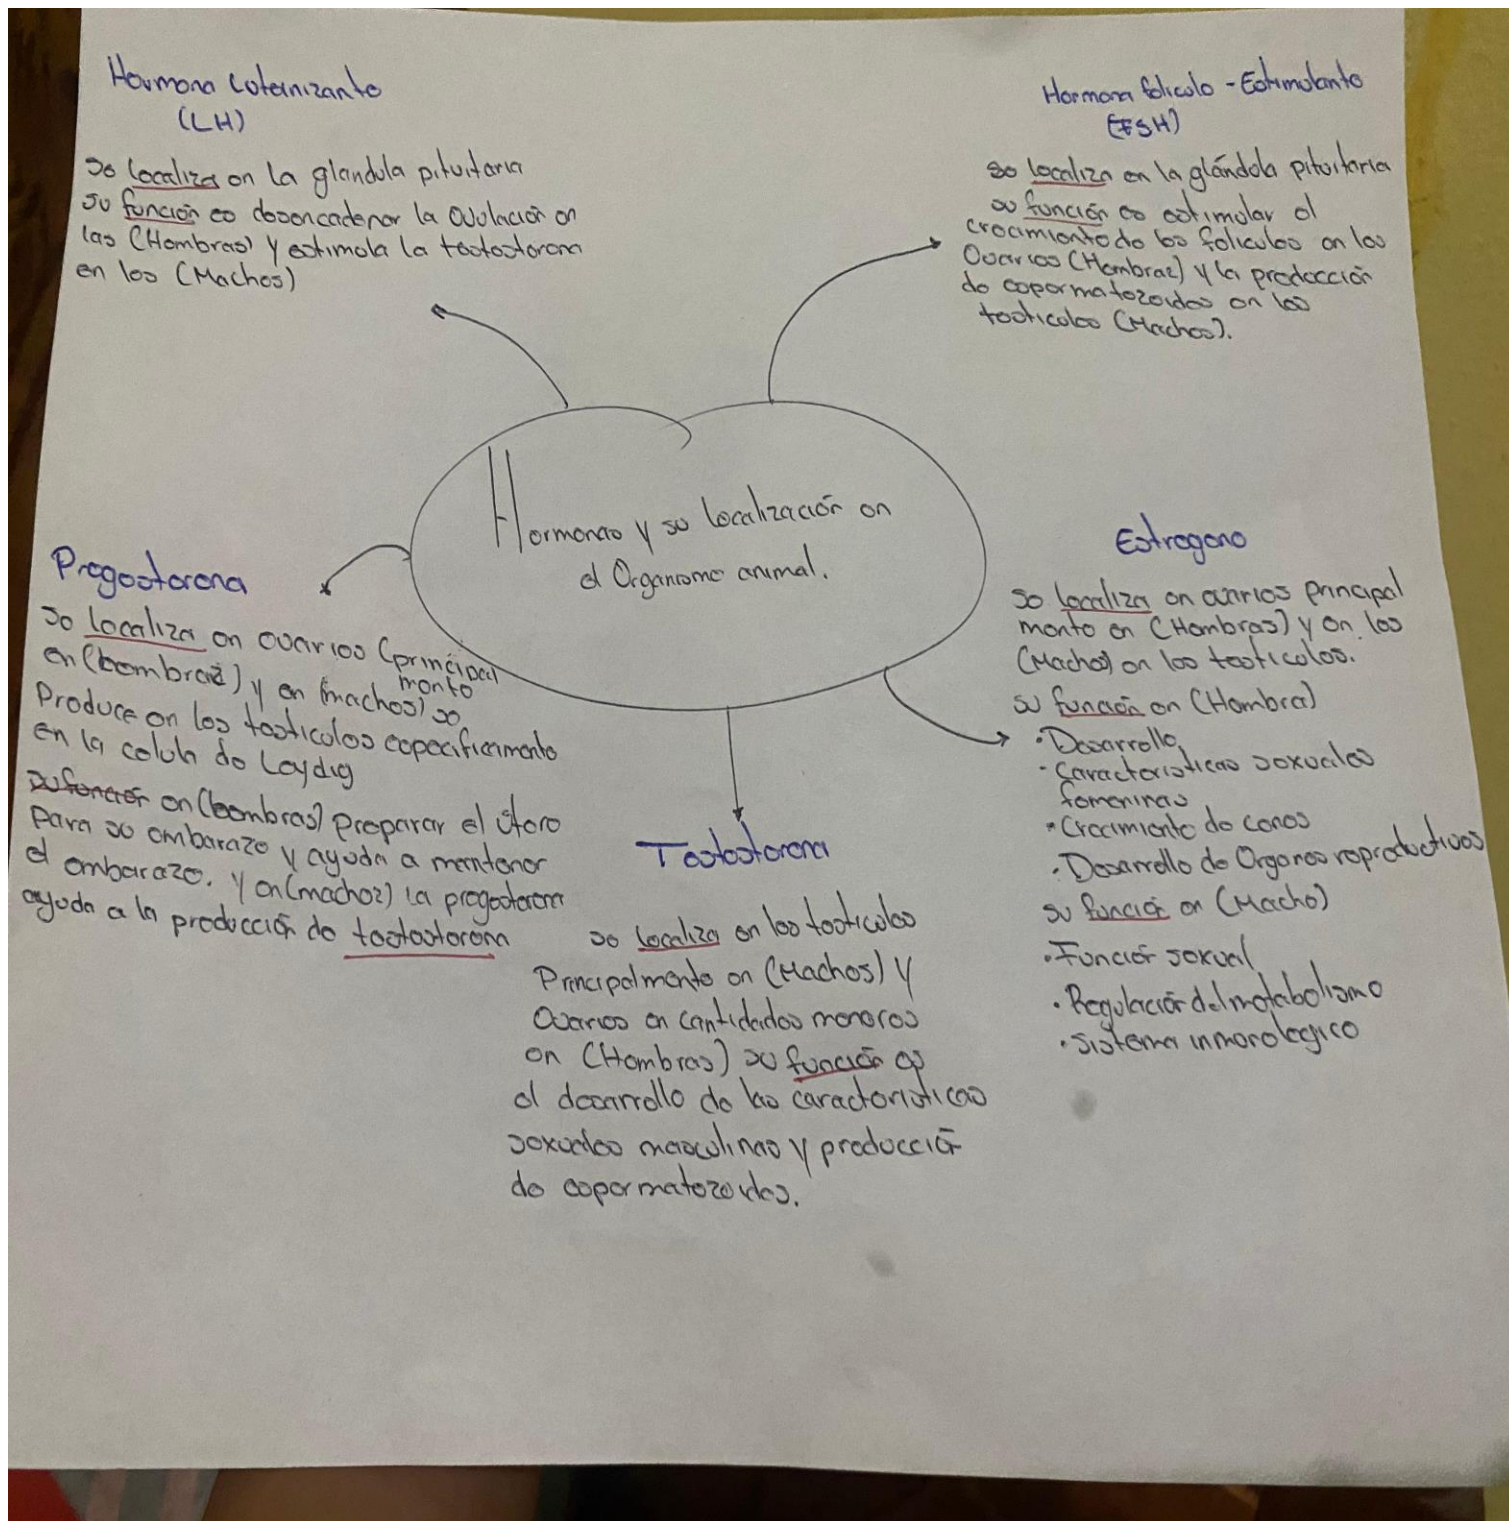 Hormona Luteinizante
(LH)
se localiza en la glandula pituitaria
su función es desencadenar la ovulación en
las (Hembras) y estimula la testosterona
en los (Machos)
Hormona foliculo - Estimulante
(FSH)
se localiza en la glándula pituitaria
su función es estimular el
crecimiento de los foliculos en los
Ovarios (Hembras) y la producción
de espermatozoides en los
testiculos (Machos).
Hormonas y su localización en
el Organismo animal.
Progesterona
se localiza en ovarios (principal
mente
en (hembras) y en (machos) se
Produce en los testiculos especificamente
en la celula de Leydig
su función en (hembras) preparar el útero
Para su embarazo y ayuda a mantener
el embarazo. y en (machos) la progesterona
ayuda a la producción de testosterona
Testosterona
se localiza en los testiculos
Principalmente en (Machos) y
Ovarios en cantidades menores
en (Hembras) su función es
el desarrollo de las caracteristicas
sexuales masculinas y producción
de espermatozoides.
Estrogeno
se localiza en ovarios principal
mente en (Hembras) y en los
(Machos) en los testiculos.
su función en (Hembra)
• Desarrollo
• caracteristicas sexuales
femeninas
• Crecimiento de
• Desarrollo de Organos reproductivos
su función en (Macho)
• Función sexual
• Regulación del metabolismo
• sistema inmorologico